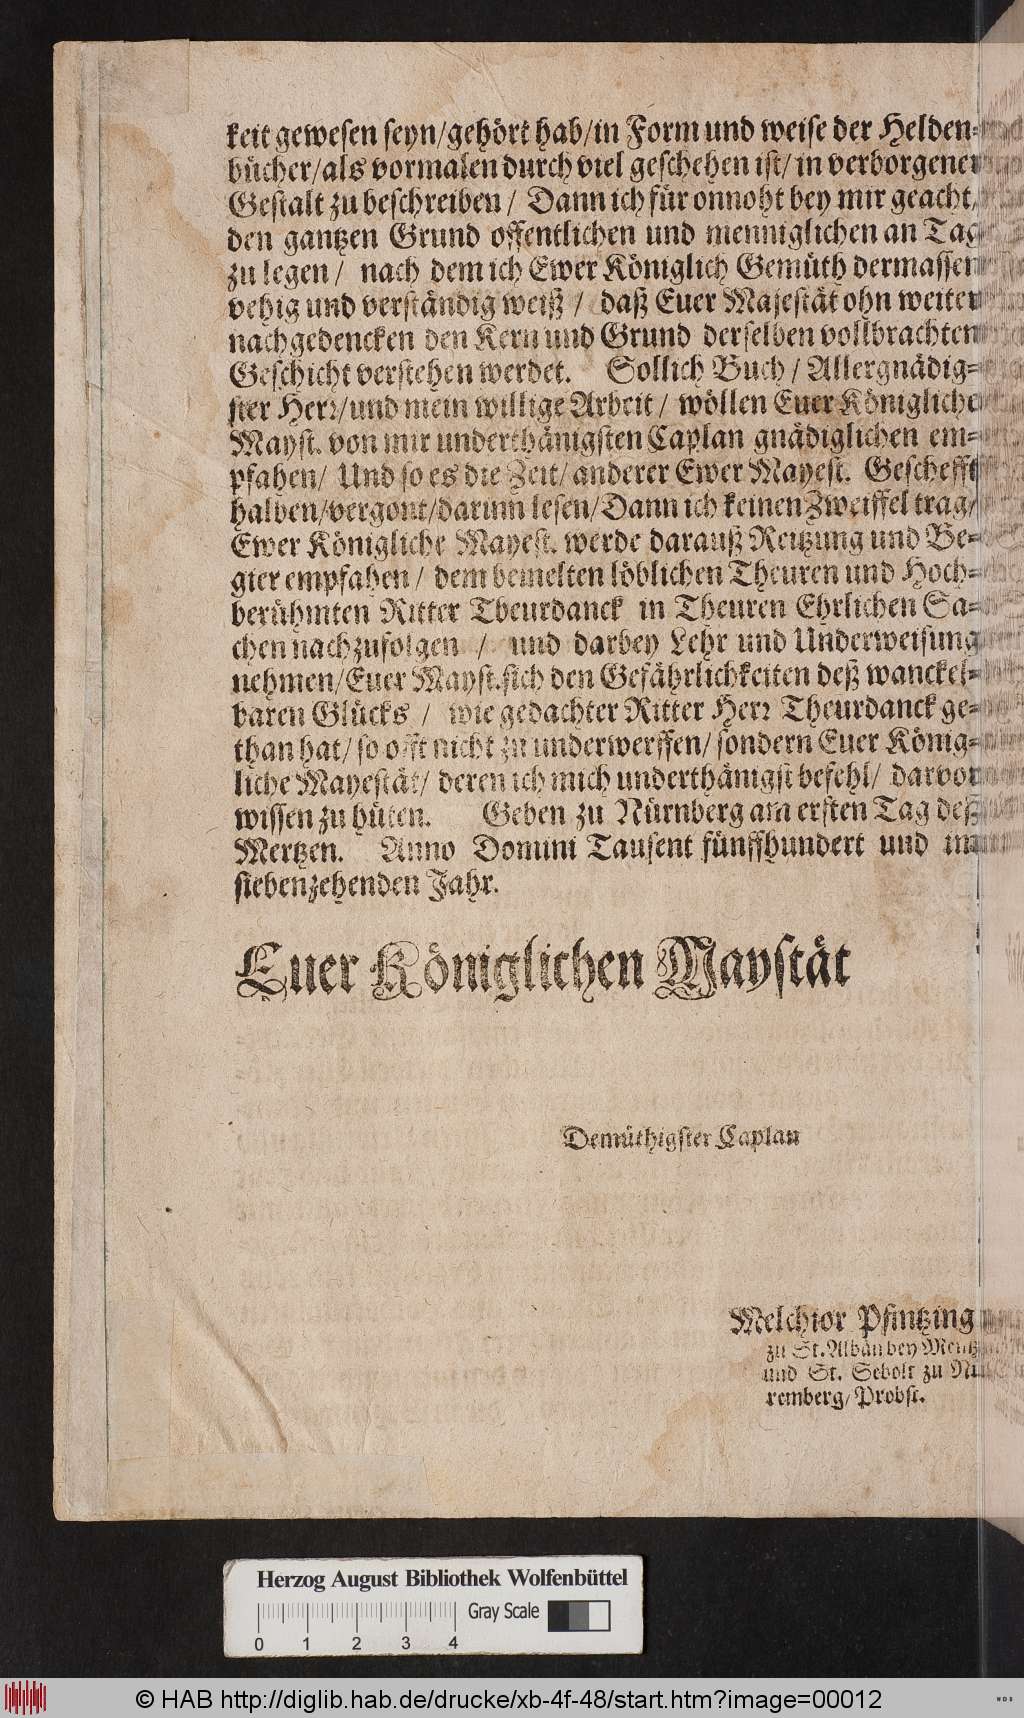 keit gewesen seyn/gehört hab/in Form und weise der Helden=
bücher/als vormalen durch viel geschehen ist/ in verborgener
Gestalt zu beschreiben/ Dann ich für onnoht bey mir geacht,
den gantzen Grund offentlichen und menniglichen an Tag
zu legen/ nach dem ich Ewer Königlich Gemüth dermassen
vehig und verständig weiß/ daß Euer Majestät ohn weiter
nachgedencken den Kern und Grund derselben vollbrachten
Geschicht verstehen werdet. Sollich Buch/ Allergnädig=
ster Herr/und mein willige Arbeit/ wöllen Euer Königliche
Mayst. von mir underthänigsten Caplan gnädiglichen em=
pfahen/ Und so es die Zeit/ anderer Ewer Mayest. Geschefft
halben/vergont/darinn lesen/Dann ich keinen Zweiffel trag/
Ewer Königliche Mayest. werde darauß Reitzung und Be=
gier empfahen/ dem bemelten löblichen Theuren und Hoch=
berühmten Ritter Theurdanck in Theuren Ehrlichen Sa=
chen nachzufolgen / und darbey Lehr und Underweisung
nehmen/Euer Mayst.sich den Gefährlichkeiten deß wanckel=
baren Glücks / wie gedachter Ritter Herr Theurdanck ge=
than hat/ so offt nicht zu underwerffen/ sondern Euer König=
liche Mayestät/ deren ich mich underthänigst befehl/ darvor
wissen zu hüten. Geben zu Nürnberg am ersten Tag deß
Mertzen. Anno Domini Tausent fünffhundert und im
siebenzehenden Jahr.
Euer Königlichen Maystät
Demüthigster Caplan
Melchior Pfintzing
zu St. Alban bey Mentz
und St. Sebolt zu Nü
remberg/ Probst.
Herzog August Bibliothek Wolfenbüttel
Gray Scale
0 1 2 3 4
© HAB http://diglib.hab.de/drucke/xb-4f-48/start.htm?image=00012